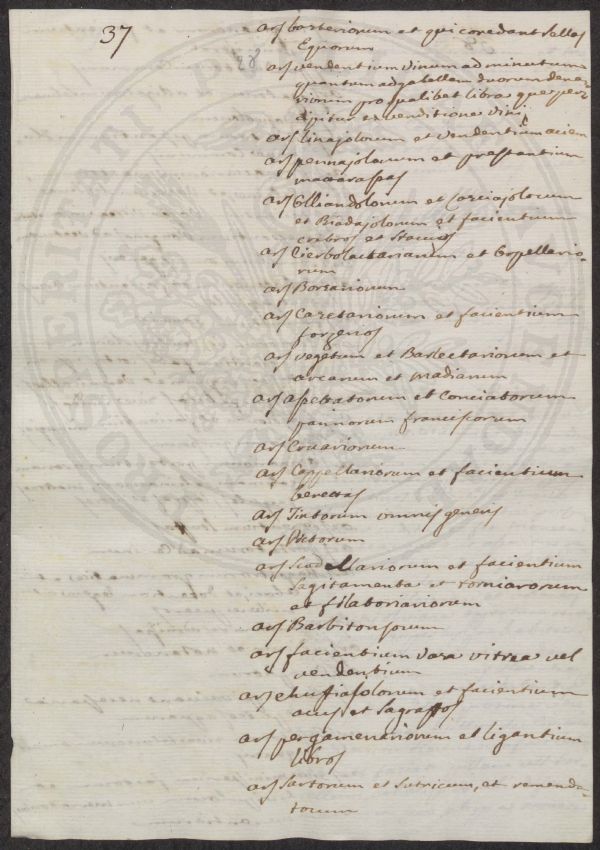 37
ars basteriorum et qui coredant sellas
Equorum
ars vendentium vinum ad minutum
quantum ad gabellam duorum dena-
riorum pro qualibet libra que per-
cipitur ex venditione vini
ars linajolorum et vendentium aciem
ars pennajolorum et prestantium
matarassas
ars et
et Biadajolorum et facientium
cribros et
ars et Capellario-
rum
ars Borsariorum
ars Caretariorum et facientium
forzerios
ars vegetum et Barlectariorum et
arcarum et madiarum
ars aptatorum et Conciatorum
pannorum franciscorum
ars
ars Cappellariorum et facientium
berectas
ars Tintorum omnis generis
ars Pictorum
ars Scodellariorum et facientium
Sagitamenta et torniarorum
et
ars Barbitonsorum
ars facientium vasa vitrea vel
vendentium
ars et facientium
acus et
ars pergamenariorum et ligantium
libros
ars Sartorum et Sutricum, et remenda-
torum